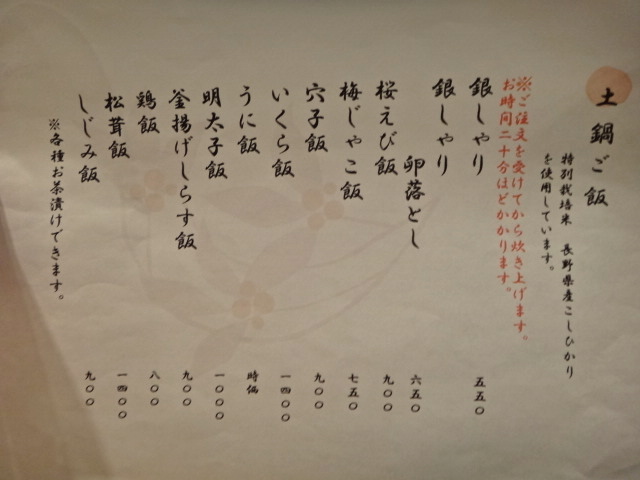 土鍋ご飯
特別栽培米　長野県産こしひかり
を使用しています。
※ご注文を受けてから炊き上げます。
お時間二十分ほどかかります。
銀しゃり　五五〇
銀しゃり
卵落とし　六五〇
桜えび飯　九〇〇
梅じゃこ飯　七五〇
穴子飯　九〇〇
いくら飯　一四〇〇
うに飯　時価
明太子飯　一〇〇〇
釜揚げしらす飯　九〇〇
鶏飯　八〇〇
松茸飯　一四〇〇
しじみ飯　九〇〇
※各種お茶漬けできます。